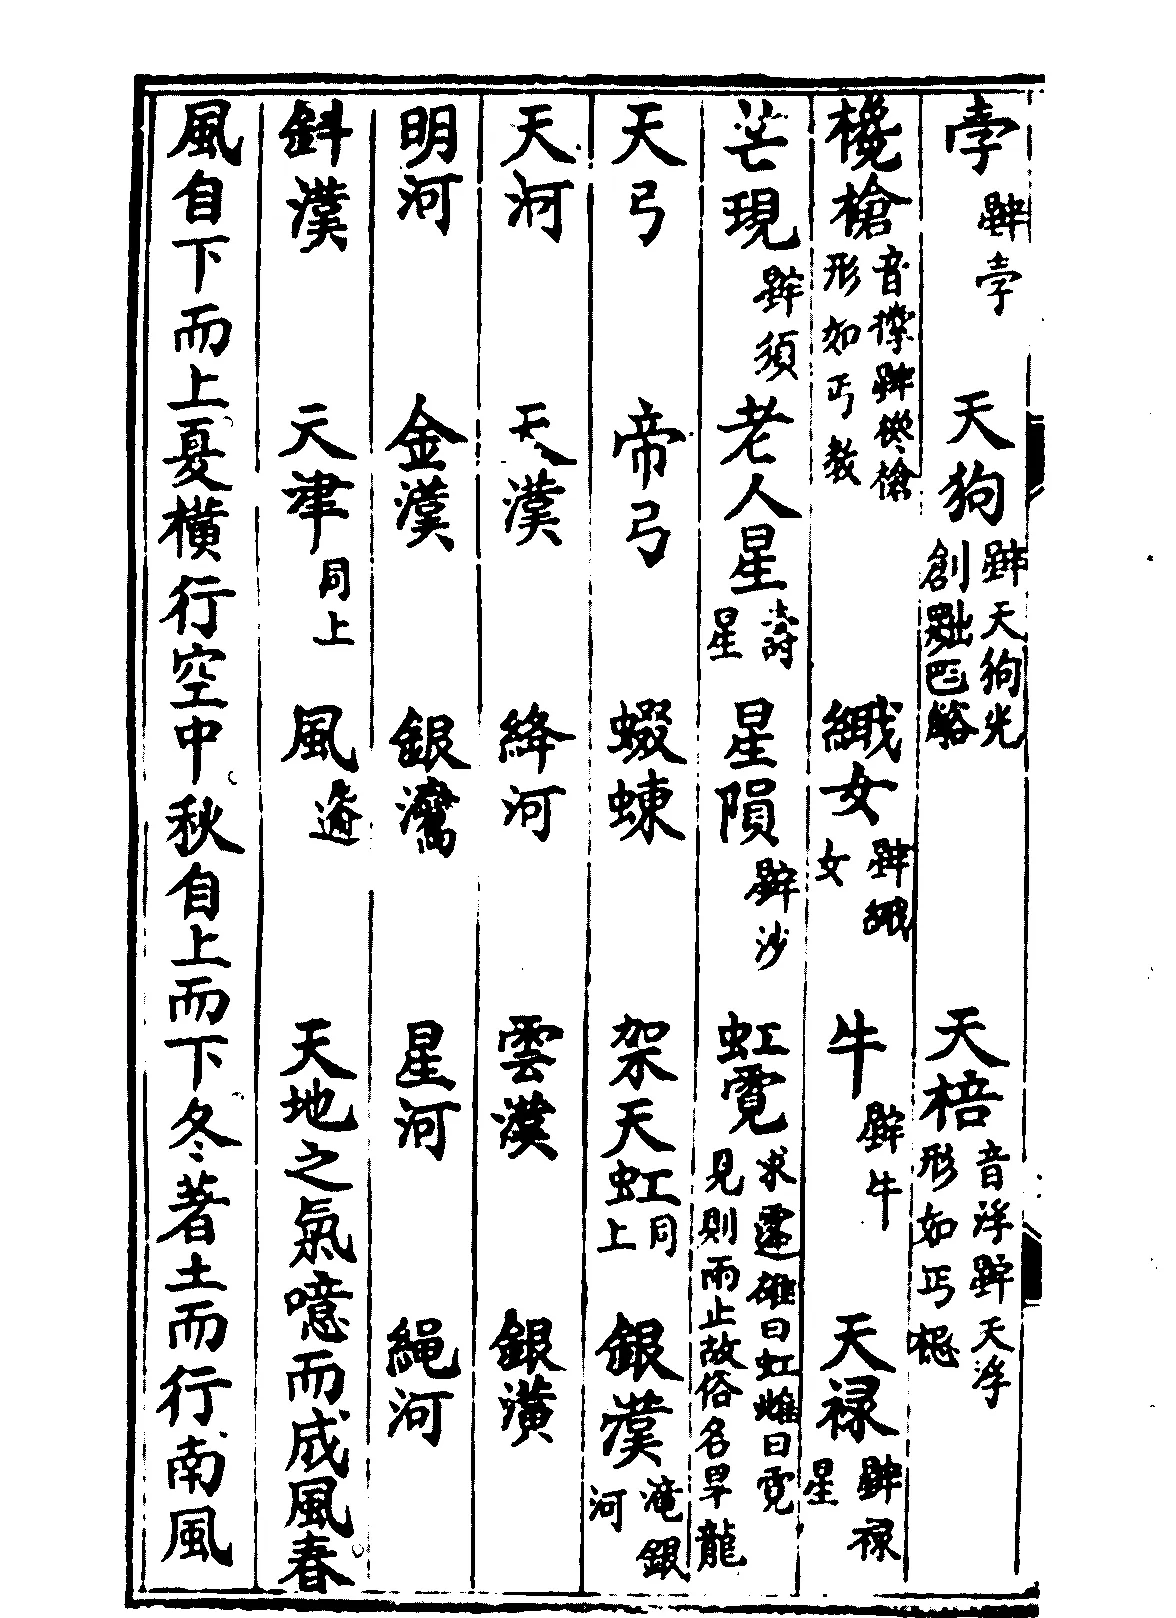 孛 𣋀孛 天狗 𣋀天狗光 創 天棓 音浮𣋀天浮 形如丐
欃槍 音 𣋀 槍 形如丐教 織女 𣋀織女 牛 𣋀牛 天禄 𣋀禄星
芒現 𣋀須 老人星 濤星 星隕 𣋀沙 虹霓 求 雄曰虹雌曰霓 見則雨止故俗名旱龍
天弓 帝弓 蝃蝀 架天虹 同上 銀漢 滝銀河
天河 天漢 絳河 雲漢 銀潢
明河 金漢 銀灣 星河 繩河
斜漢 天津 同上 風 𩙍 天地之氣噫而成風春
風自下而上夏橫行空中秋自上而下冬著土而行南風